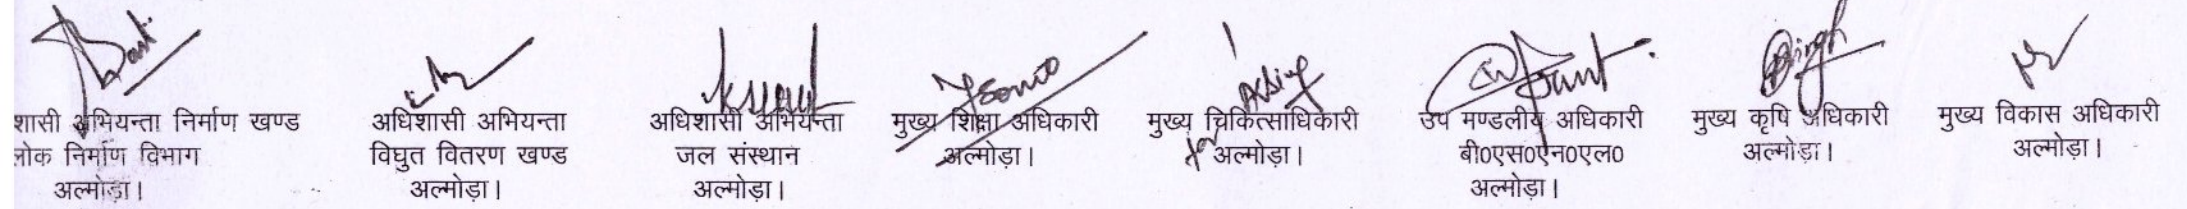 शासी अभियन्ता निर्माण खण्ड
लोक निर्माण विभाग
अल्मोड़ा।
अधिशासी अभियन्ता
विघुत वितरण खण्ड
अल्मोड़ा।
अधिशासी अभियन्ता
जल संस्थान
अल्मोड़ा।
मुख्य शिक्षा अधिकारी
अल्मोड़ा।
मुख्य चिकित्साधिकारी
for अल्मोड़ा।
उप मण्डलीय अधिकारी
बी0एस0एन0एल0
अल्मोड़ा।
Singh
मुख्य कृषि अधिकारी
अल्मोड़ा।
मुख्य विकास अधिकारी
अल्मोड़ा।